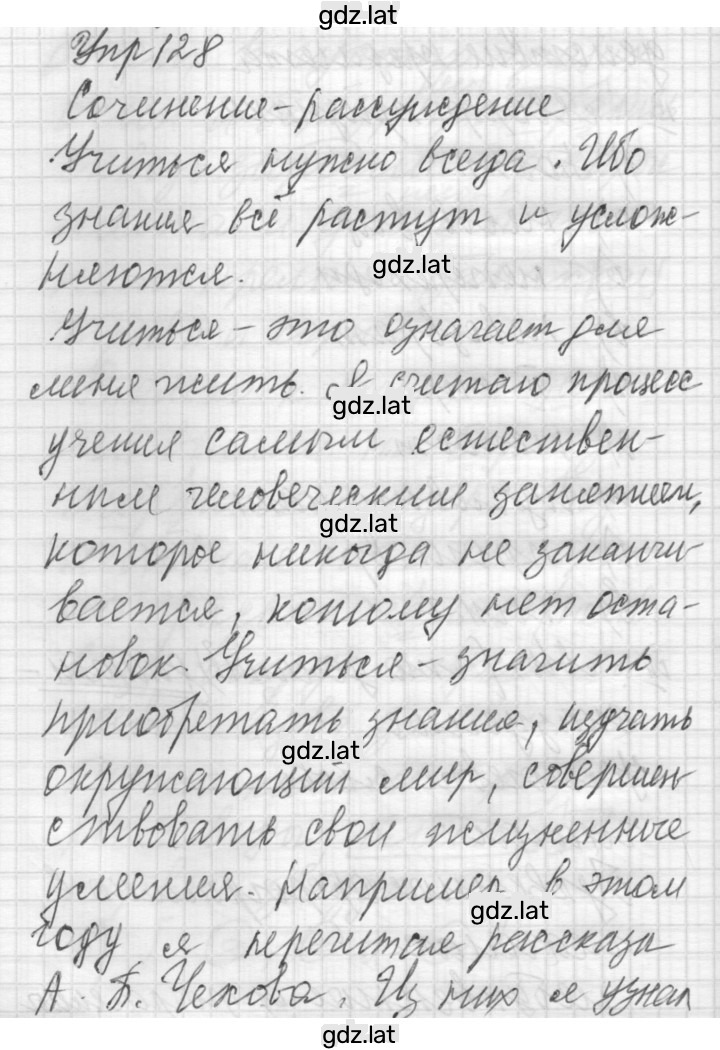 gdz.lat
Упр 128
Сочинение-рассуждение
Учиться нужно всегда. Ибо
знания всё растут и услож-
няются.
gdz.lat
Учиться - это означает для
меня жить. Я считаю процесс
gdz.lat
учения самым естествен-
ным человеческим занятием,
gdz.lat
которое никогда не заканчи-
вается, котому нет оста-
новок. Учиться - значить
приобретать знания, изучать
gdz.lat
окружающий мир, совершен-
ствовать свои жизненные
умения. Например в этом
gdz.lat
году я перечитал рассказы
А. П. Чехова. Из них я узнал
gdz.lat